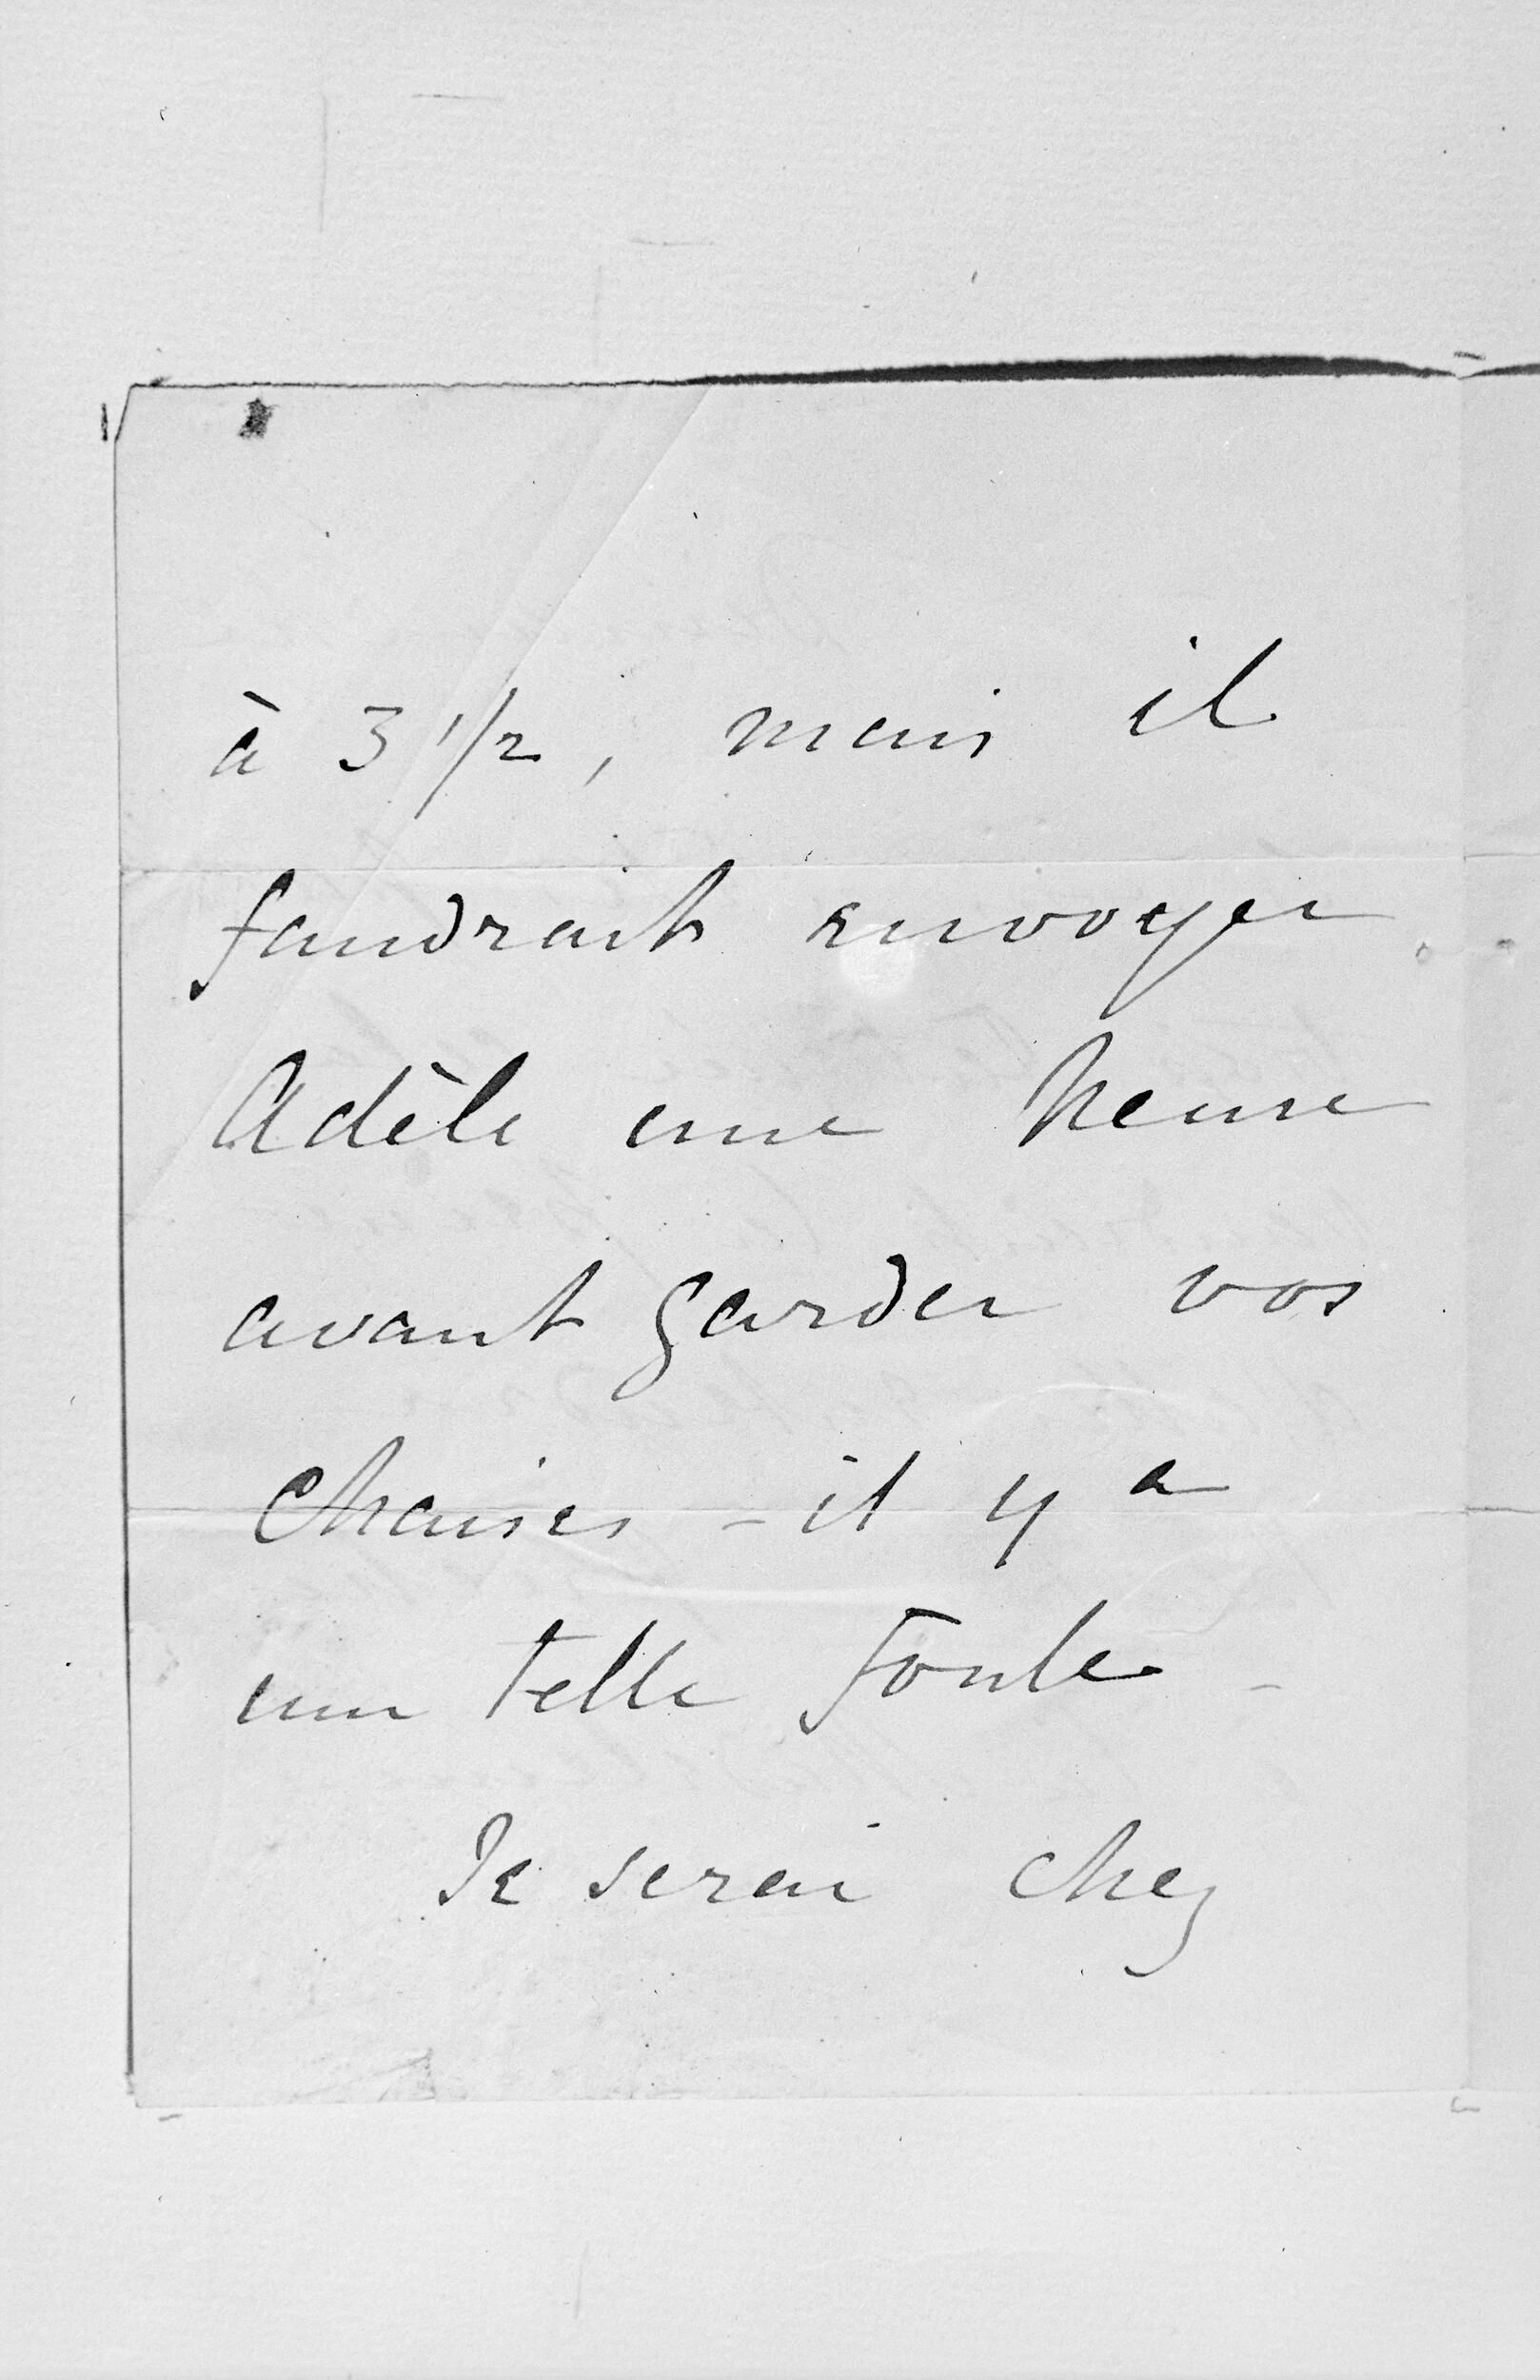 à 3 1/2, mais il
faudrait envoyer
Adèle une heure
avant garder vos
chaises - il y a
une telle foule -
Je serai chez